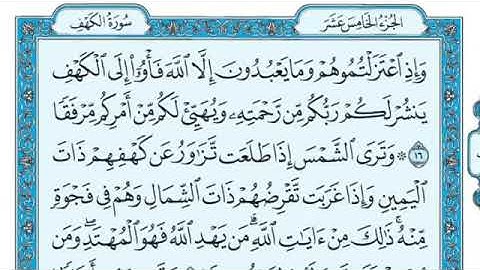 الجزء الخامس عشر
سورة الكهف
وَإِذِ ٱعْتَزَلْتُمُوهُمْ وَمَا يَعْبُدُونَ إِلَّا ٱللَّهَ فَأْوُۥٓا۟ إِلَى ٱلْكَهْفِ
يَنشُرْ لَكُمْ رَبُّكُم مِّن رَّحْمَتِهِۦ وَيُهَيِّئْ لَكُم مِّنْ أَمْرِكُم مِّرْفَقًا
١٦ ۞ وَتَرَى ٱلشَّمْسَ إِذَا طَلَعَت تَّزَٰوَرُ عَن كَهْفِهِمْ ذَاتَ
ٱلْيَمِينِ وَإِذَا غَرَبَت تَّقْرِضُهُمْ ذَاتَ ٱلشِّمَالِ وَهُمْ فِى فَجْوَةٍ
مِّنْهُ ۚ ذَٰلِكَ مِنْ ءَايَٰتِ ٱللَّهِ ۗ مَن يَهْدِ ٱللَّهُ فَهُوَ ٱلْمُهْتَدِ ۖ وَمَن